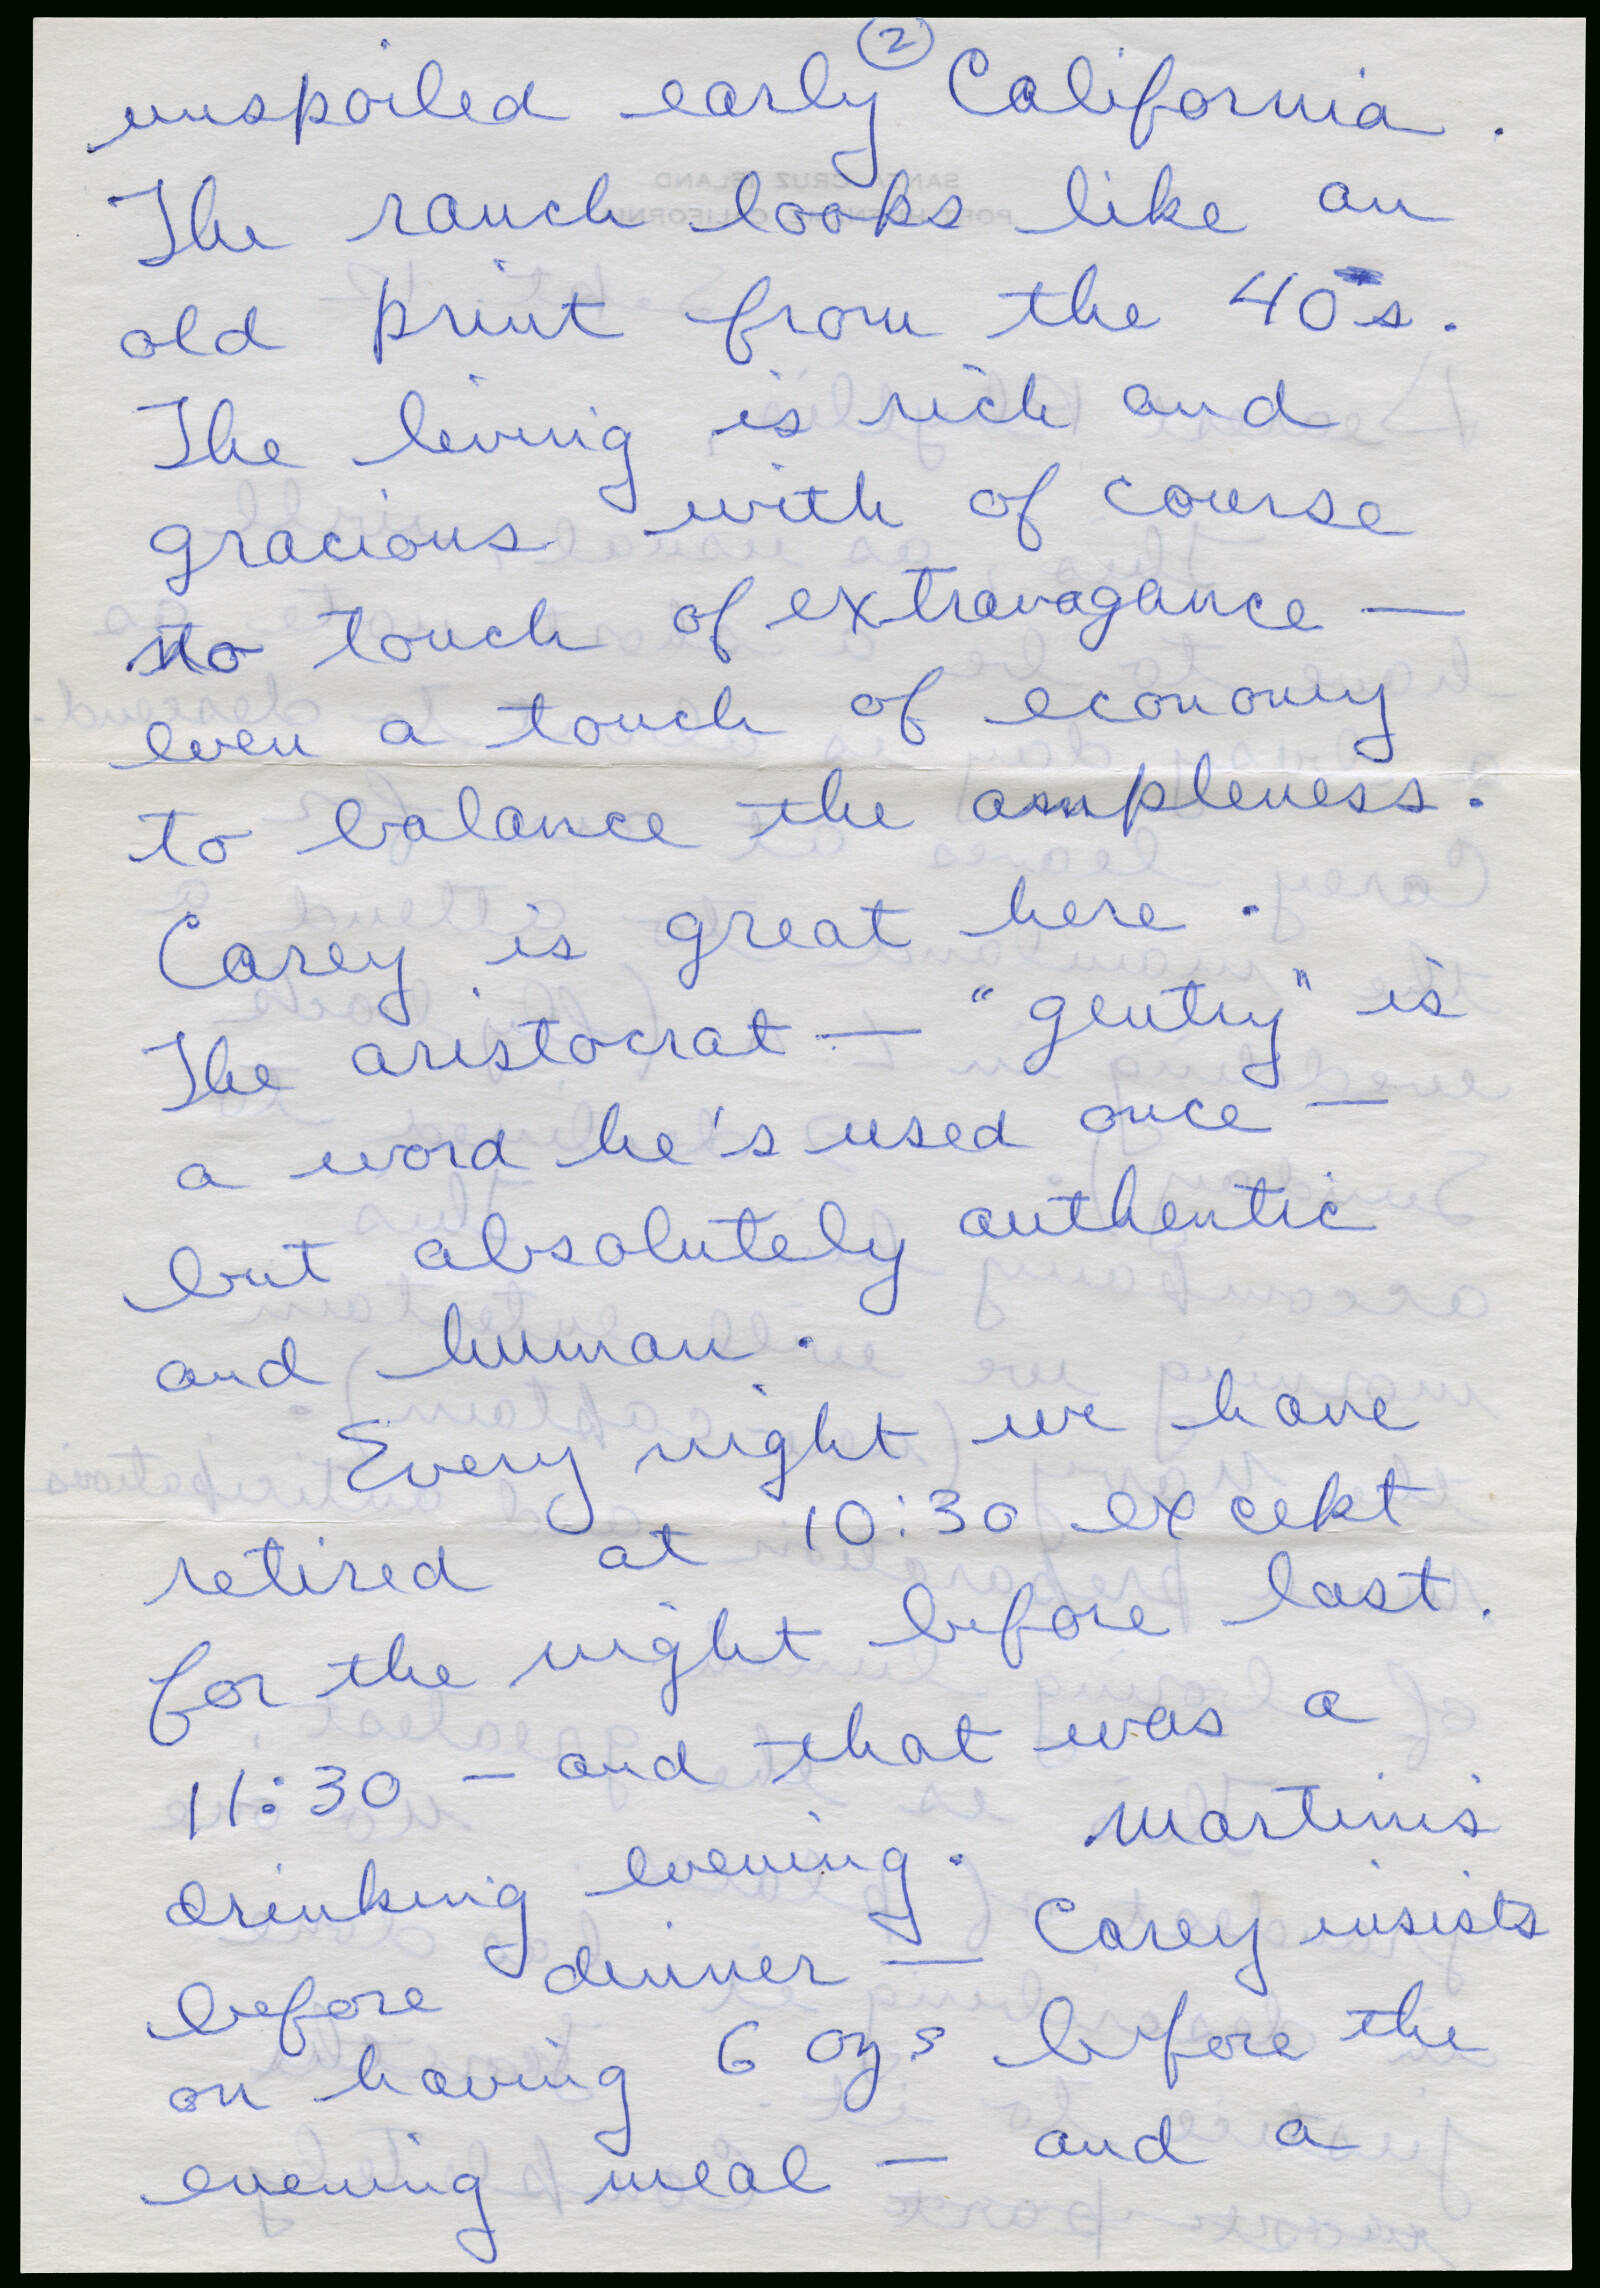 ②
unspoiled early California.
SANTA CRUZ ISLAND
PORT HUENEME, CALIFORNIA
The ranch looks like an
old print from the 40s.
The living is rich and
gracious with of course
no touch of extravagance —
even a touch of economy
to balance the ampleness.
Carey is great here.
The aristocrat — "gentry" is
a word he's used once —
but absolutely authentic
and human.
Every night we have
retired at 10:30 except
for the night before last.
11:30 — and that was a
drinking evening. Martinis
before dinner — Carey insists
on having 6 ozs before the
evening meal — and a